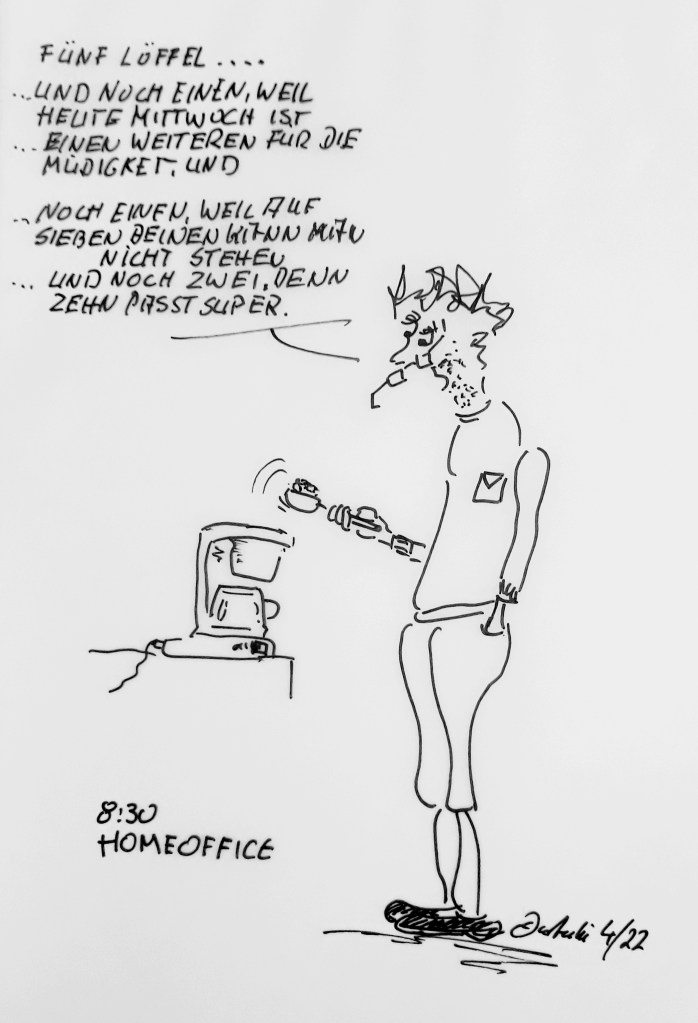 FÜNF LÖFFEL ....
...UND NOCH EINEN, WEIL
HEUTE MITTWOCH IST
... EINEN WEITEREN FÜR DIE
MÜDIGKEIT, UND
... NOCH EINEN, WEIL AUF
SIEBEN BEINEN KANN MAN
NICHT STEHEN
... UND NOCH ZWEI, DENN
ZEHN PASST SUPER.
8:30
HOMEOFFICE
4/22